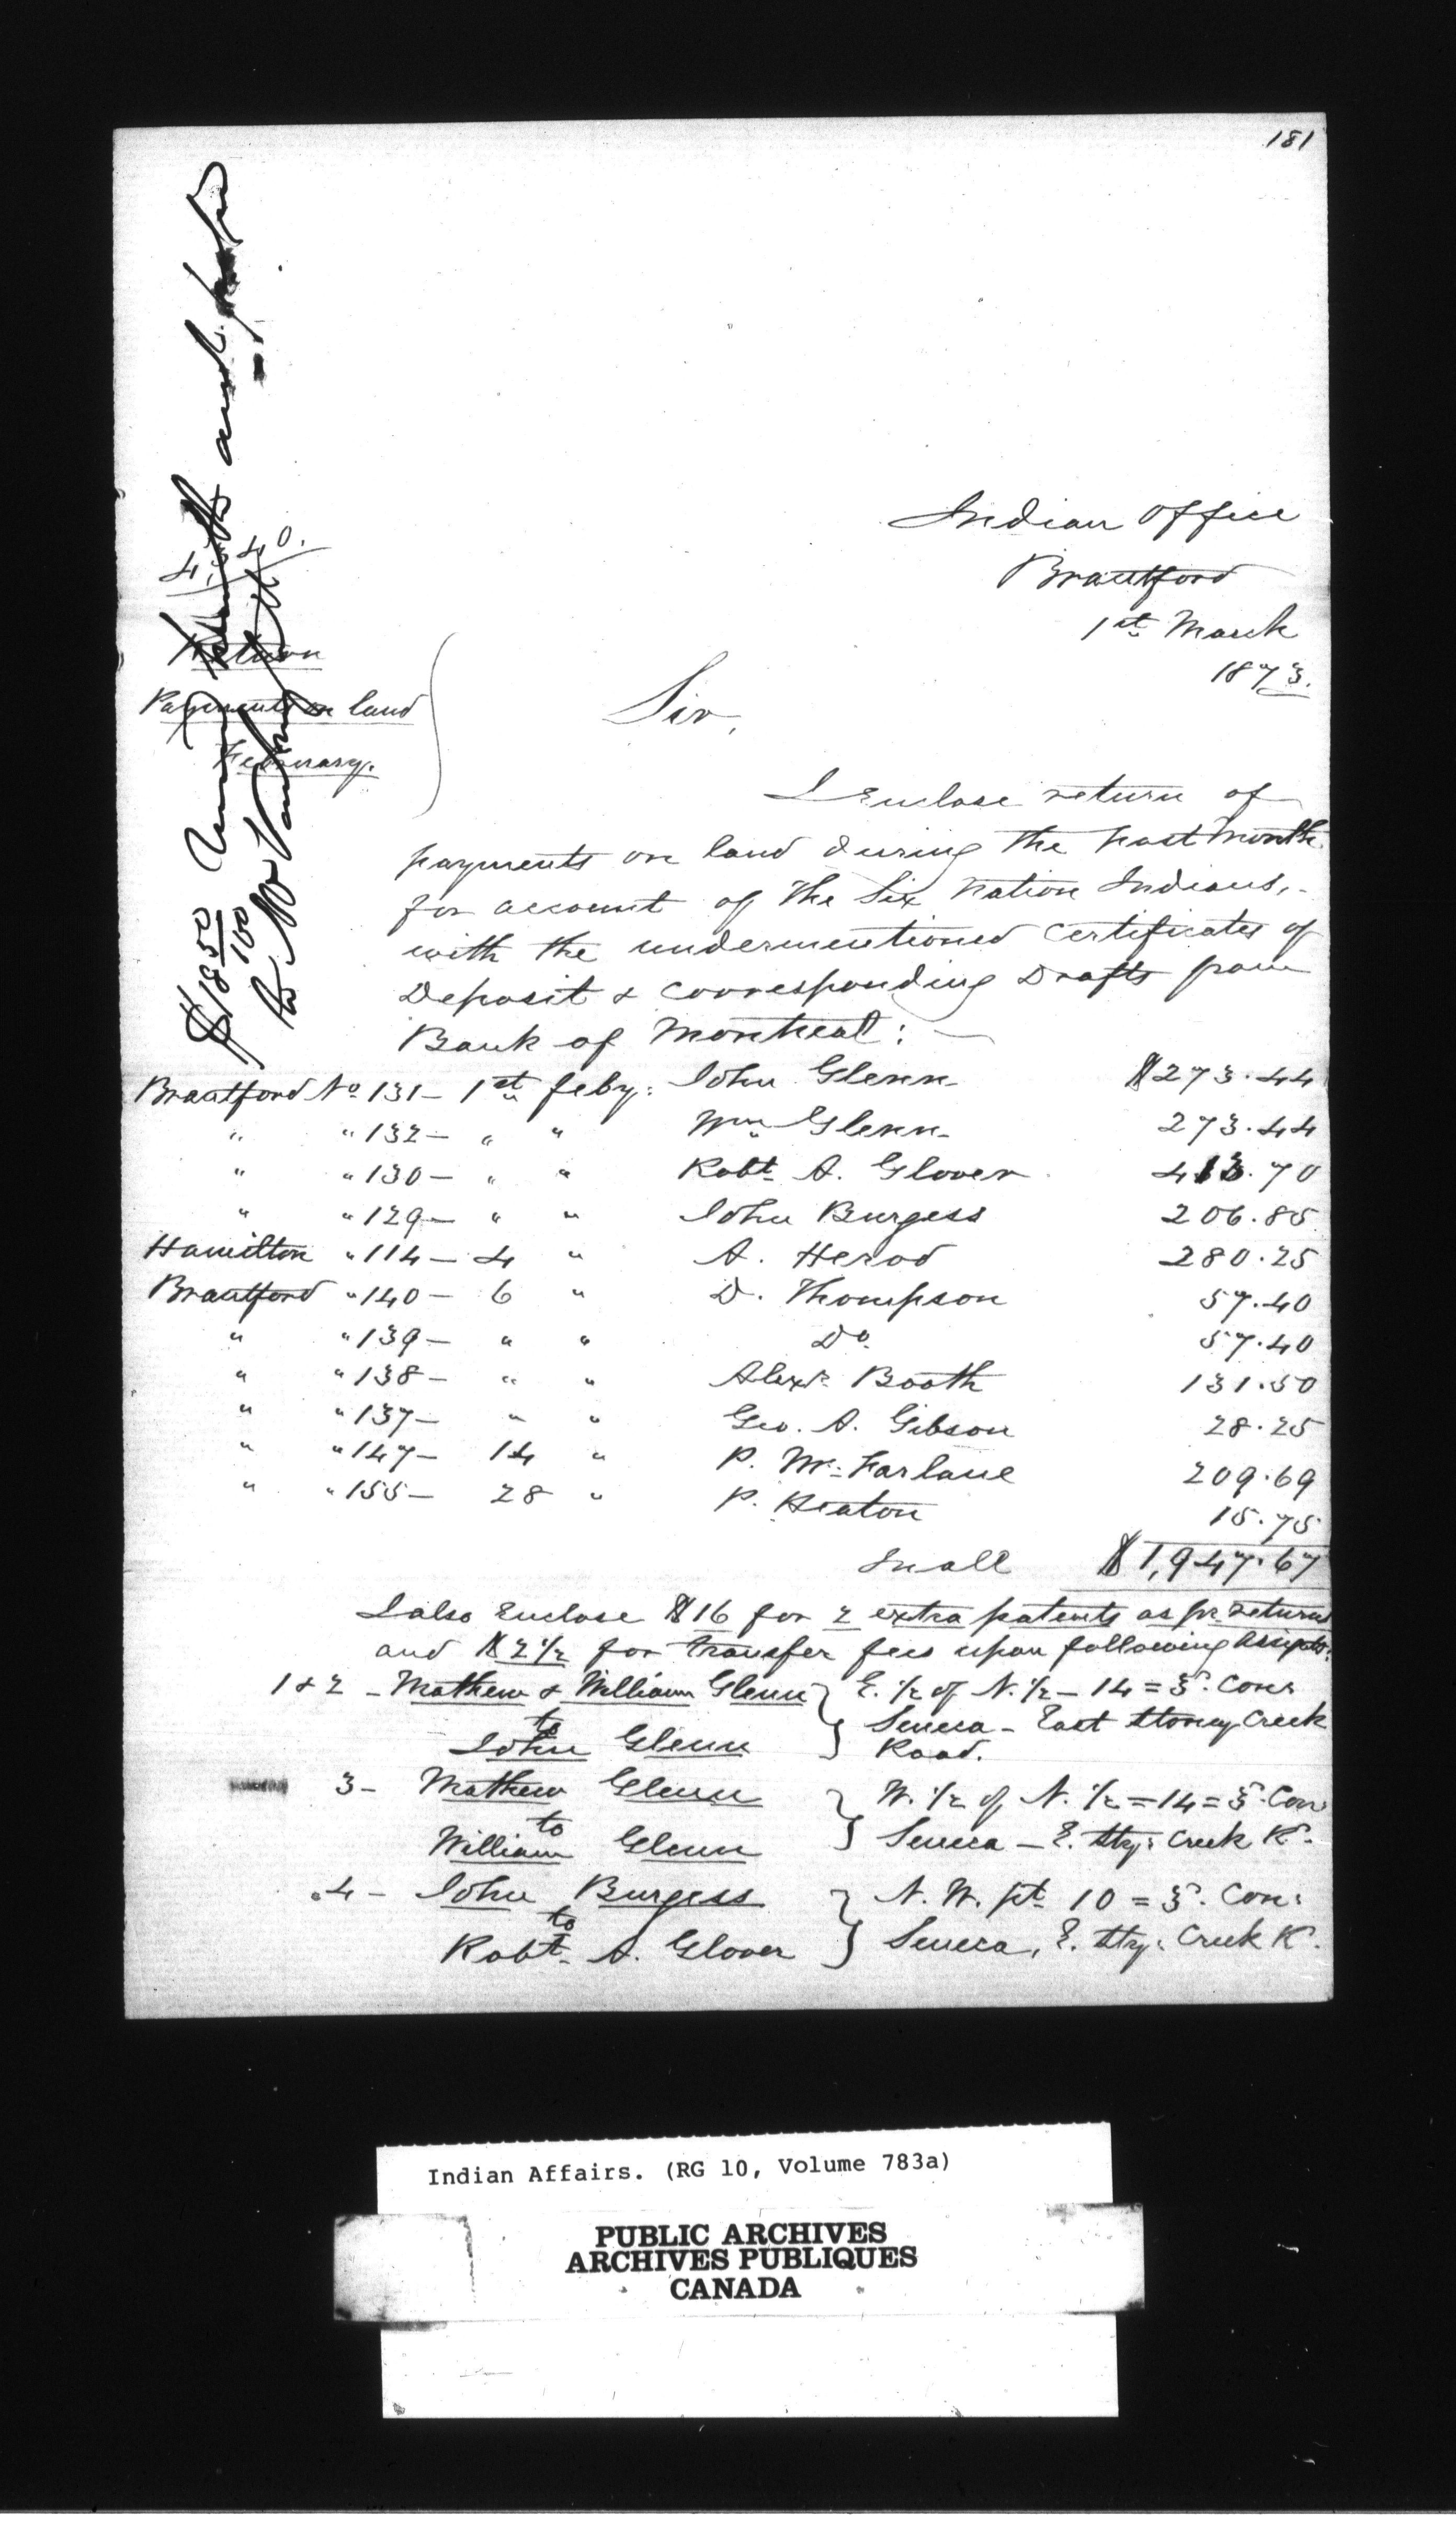 181
Indian Office
Brantford
1st March
1873.
4,540.
Return
Payments on land
February.
Sir,
I Enclose return of
payments on land during the past month
for account of the Six Nation Indians,
with the undermentioned Certificates of
Deposit & Corresponding Drafts from
Bank of Montreal: —
Brantford No. 131 — 1st Feby: John Glenn $273.44
" " 132 — " " Wm Glenn 273.44
" " 130 — " " Robt. A. Glover 413.70
" " 129 — " " John Burgess 206.85
Hamilton " 114 — 4 " A. Herod 280.25
Brantford " 140 — 6 " D. Thompson 57.40
" " 139 — " " Do. 57.40
" " 138 — " " Alexr. Booth 131.50
" " 137 — " " Geo. A. Gibson 28.25
" " 147 — 14 " P. Mc.Farlane 209.69
" " 155 — 28 " P. Heaton 15.75
In all $1,947.67
I also Enclose $16 for 2 extra patents as pr. return
and $2½ for transfer fees upon following Assignts:
1 & 2 — Mathew & William Glenn } E. ½ of N. ½ — 14 = 5. Con:
to
John Glenn } Seneca — East Stoney Creek
Road.
3 — Mathew Glenn } W. ½ of N. ½ = 14 = 5. Con
to
William Glenn } Seneca — E. Sty: Creek R.
4 — John Burgess } N. W. pt. 10 = 5. Con:
to
Robt. A. Glover } Seneca, E. Sty: Creek R.
$18 50/100
Indian Affairs. (RG 10, Volume 783a)
PUBLIC ARCHIVES
ARCHIVES PUBLIQUES
CANADA